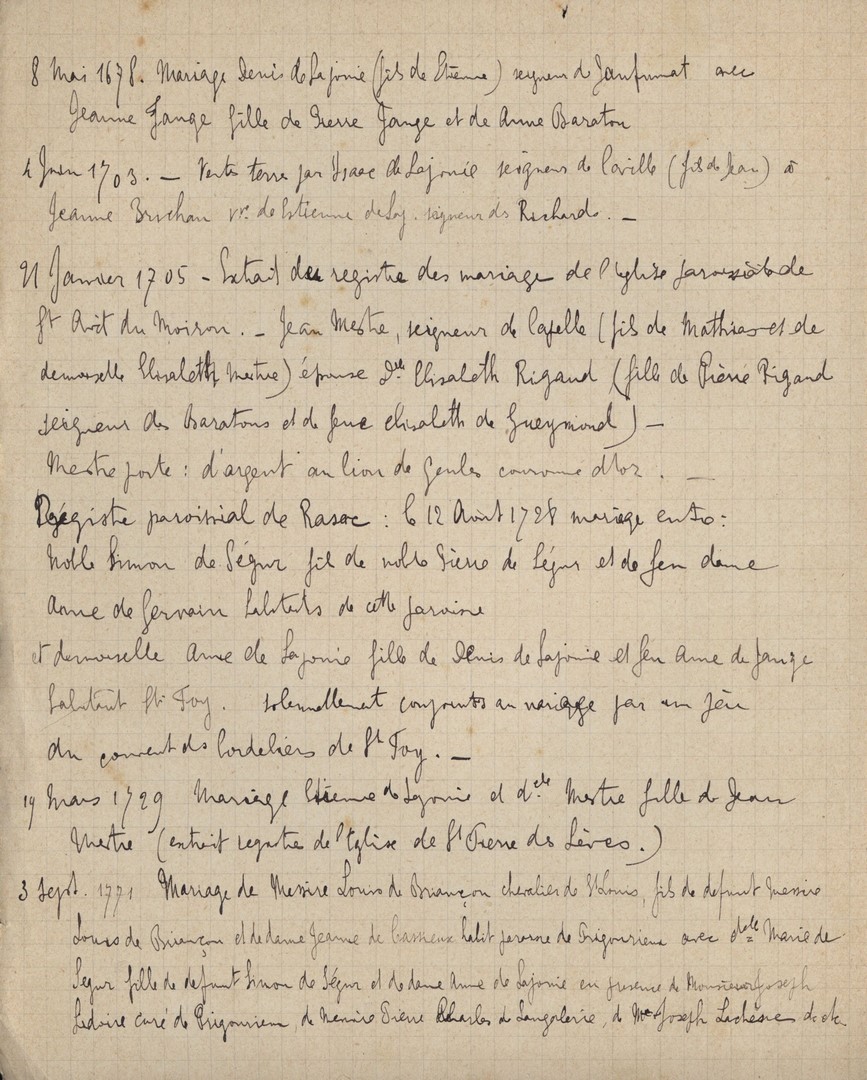 8 Mai 1678. Mariage Denis de Lajonie (fils de Etienne) seigneur de Jaufumat avec
Jeanne Jange fille de Pierre Jange et de Anne Baraton
4 Juin 1703. — Vente terre par Isaac de Lajonie seigneur de Caville (fils de Jean) à
Jeanne Bruchan vve de Estienne de Laj. seigneur des Richards. —
21 Janvier 1705 - Extrait du registre des mariage de l'Eglise paroissiale de
St Avit du Moiron. — Jean Mestre, seigneur de Capelle (fils de Mathias et de
demoiselle Elisabeth Mestre) épouse Dlle Elisabeth Rigaud (fille de Pierre Rigaud
seigneur des Baratons et de feue elisabeth de Gueymond) —
Mestre porte : d'argent au lion de geules couronné d'or. —
Régistre paroissial de Rasac : le 12 Août 1728 mariage entre :
Noble Simon de Ségur fils de noble Pierre de Ségur et de feu dame
Anne de Gervain habitants de cette paroisse
et demoiselle Anne de Lajonie fille de Denis de Lajonie et feu Anne de Jange
habitant Ste Foy. solennellement conjoints au mariage par un
du couvent des Cordeliers de Ste Foy. —
19 Mars 1729 Mariage Etienne de Lajonie et delle Mestre fille de Jean
Mestre (extrait registre de l'Eglise de St Pierre des Lèves.)
3 Sept. 1771 Mariage de Messire Louis de Briançon chevalier de St Louis, fils de defunt messire
Louis de Briançon et de dame Jeanne de habit paroisse de Prigonrieux avec dlle Marie de
Segur fille de defunt Simon de Ségur et de dame Anne de Lajonie en presence de Monsieur Joseph
Ledoire curé de Prigonrieux, de Messire Pierre Charles de Langalerie, de Me Joseph Lachèse de etc